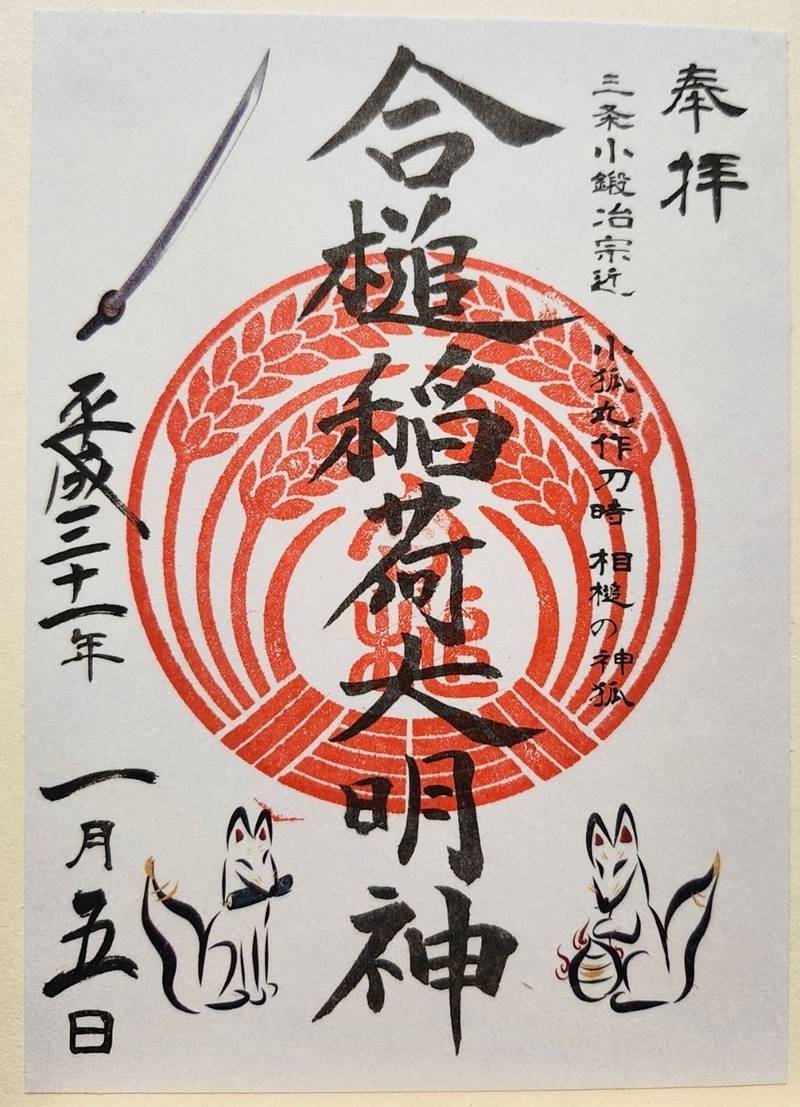 奉拝
三条小鍛冶宗近 小狐丸作刀時 相槌の神狐
合槌稲荷大明神
平成三十一年 一月五日